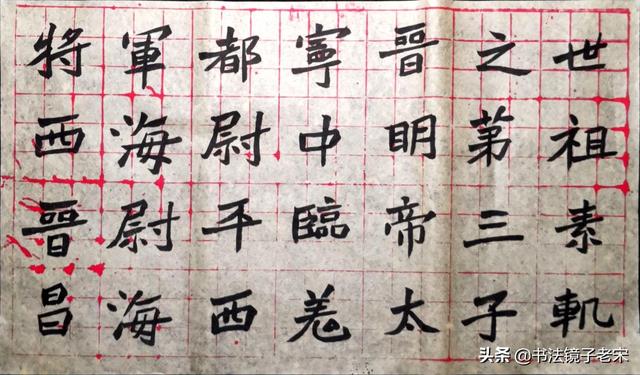 世祖素軌
之第三子
晉明帝太
寧中臨羌
都尉平西
軍海尉海
將西晉昌
头条 @书法镜子老宋